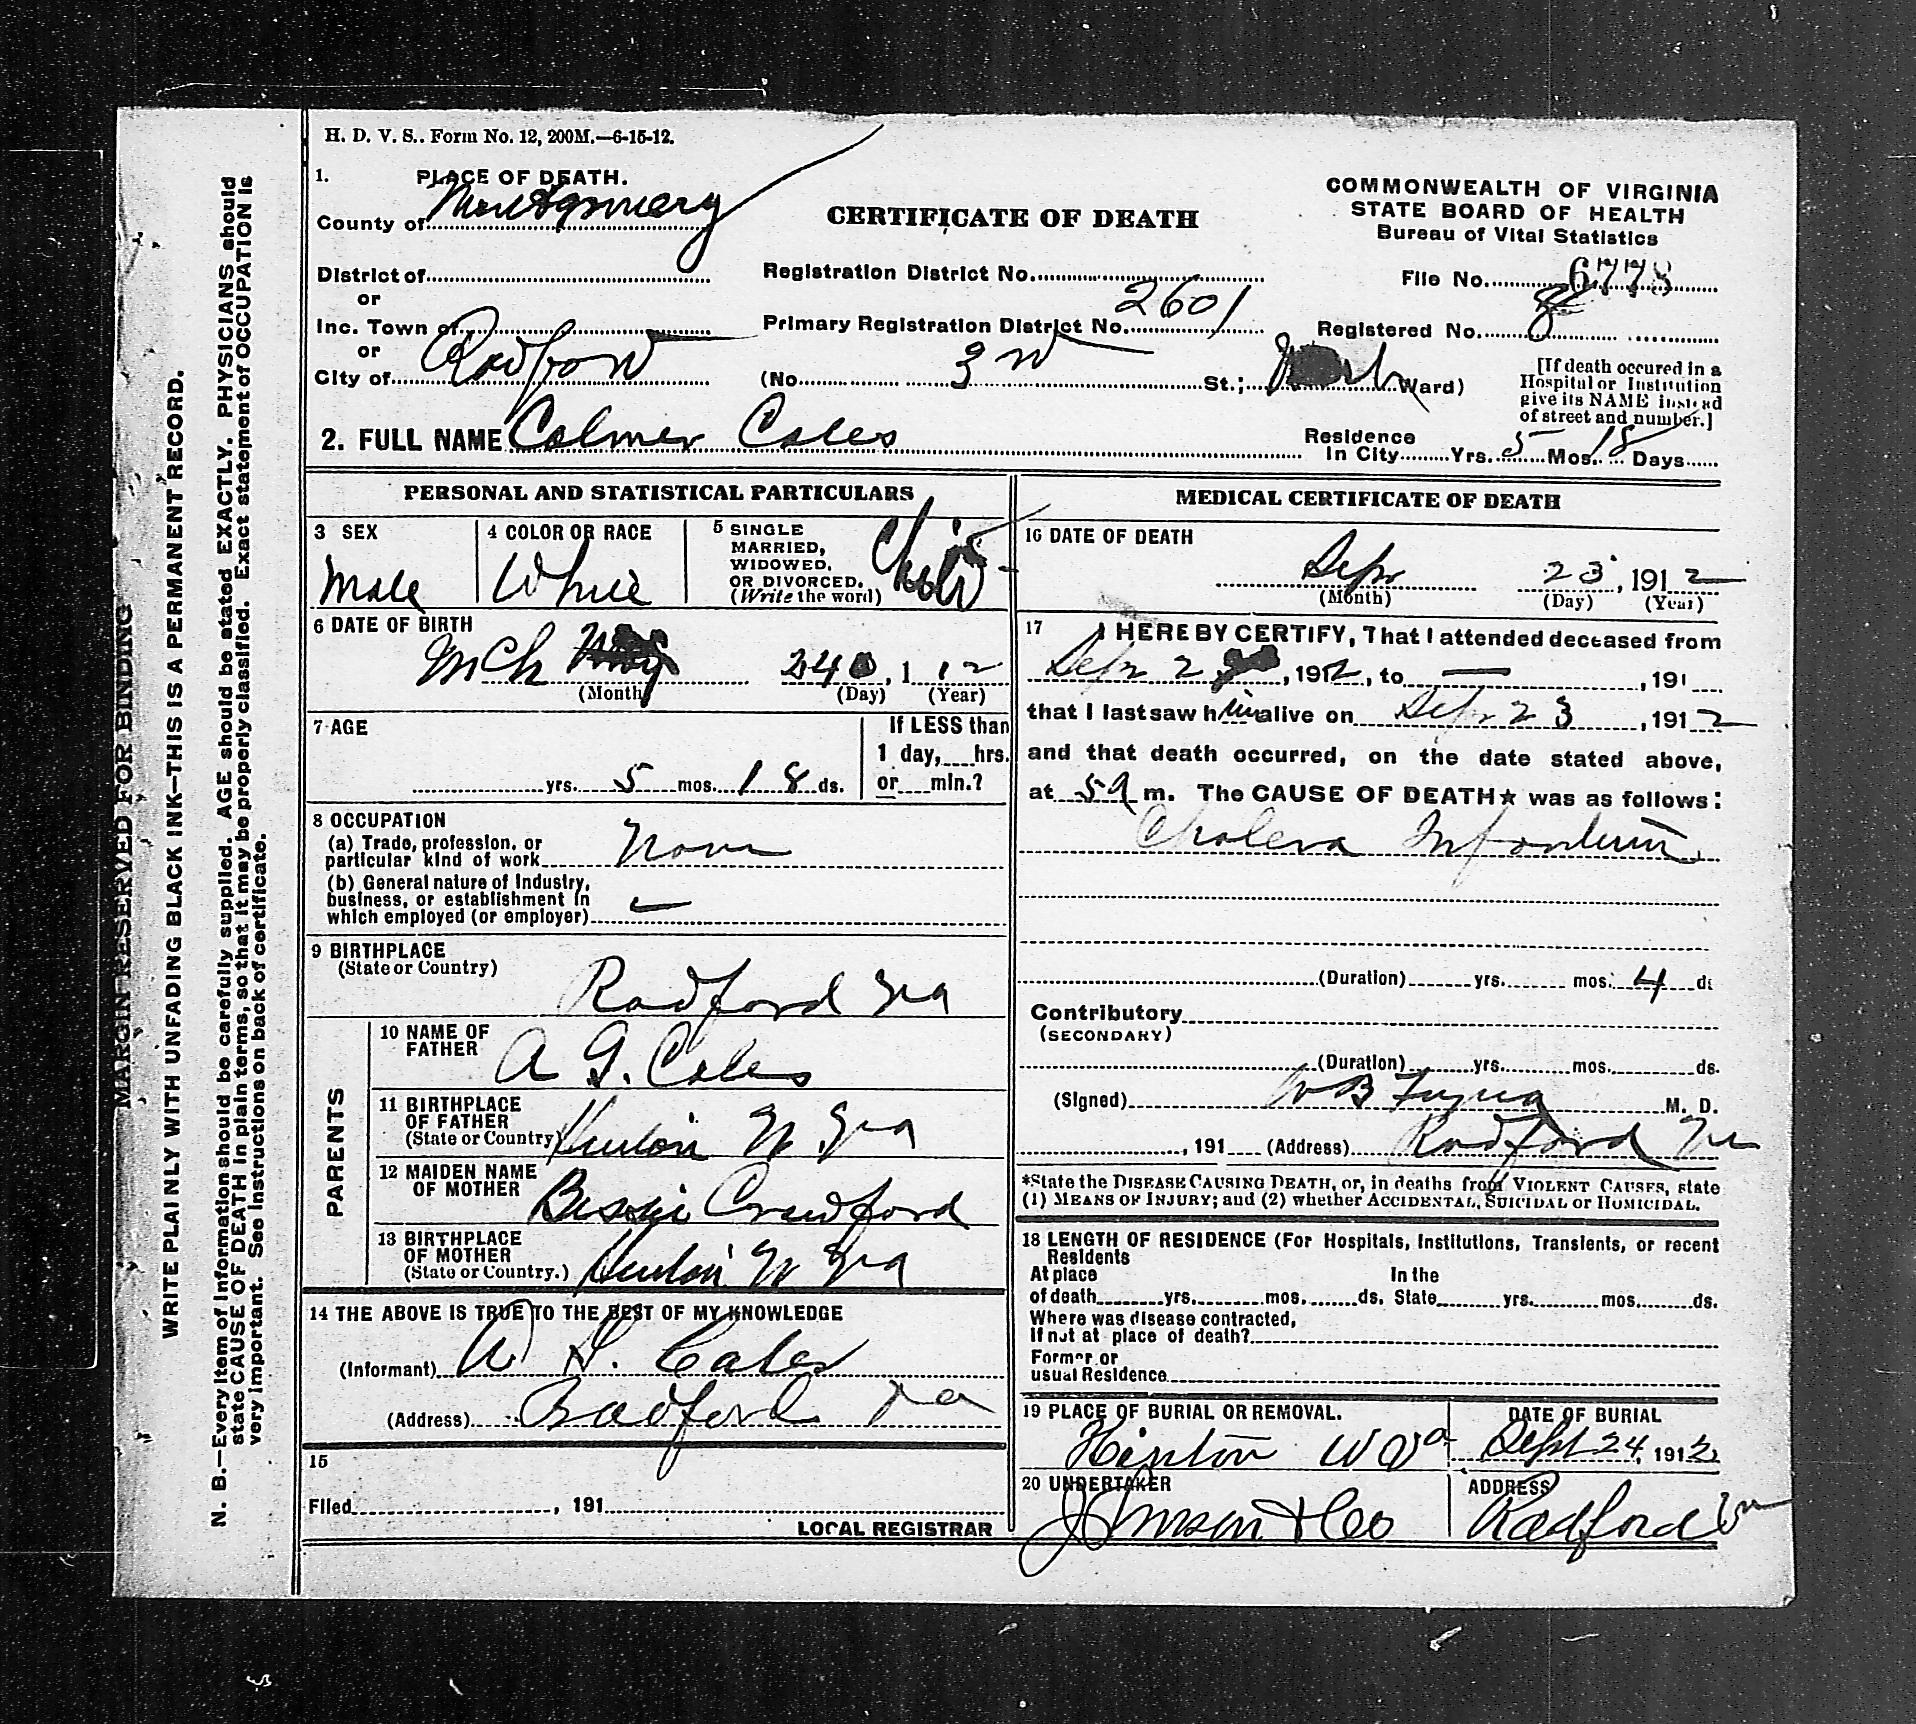 H. D. V. S.. Form No. 12, 200M.—6-15-12.
1. PLACE OF DEATH.
County of Montgomery
District of
or
Inc. Town of
or
City of Radford
CERTIFICATE OF DEATH
Registration District No.
Primary Registration District No. 2601
(No. 3rd St.; Ward)
COMMONWEALTH OF VIRGINIA
STATE BOARD OF HEALTH
Bureau of Vital Statistics
File No. 6778
Registered No. 8
[If death occured in a
Hospital or Institution
give its NAME instead
of street and number.]
2. FULL NAME Colmer Cales
Residence
In City Yrs. 5 Mos. 18 Days
PERSONAL AND STATISTICAL PARTICULARS
3 SEX
Male
4 COLOR OR RACE
White
5 SINGLE
MARRIED,
WIDOWED,
OR DIVORCED.
(Write the word)
Child
6 DATE OF BIRTH
Mch 24, 1 12
(Month) (Day) (Year)
7 AGE
yrs. 5 mos. 18 ds.
If LESS than
1 day, hrs.
or min.?
8 OCCUPATION
(a) Trade, profession, or
particular kind of work None
(b) General nature of Industry,
business, or establishment in
which employed (or employer)
9 BIRTHPLACE
(State or Country)
Radford Va
PARENTS
10 NAME OF
FATHER
A G. Cales
11 BIRTHPLACE
OF FATHER
(State or Country)
Hinton W. Va
12 MAIDEN NAME
OF MOTHER
Bessie Crawford
13 BIRTHPLACE
OF MOTHER
(State or Country.)
Hinton W Va
14 THE ABOVE IS TRUE TO THE BEST OF MY KNOWLEDGE
(Informant) Cales
(Address) Radford Va
15
Filed , 191
LOCAL REGISTRAR
MEDICAL CERTIFICATE OF DEATH
16 DATE OF DEATH
Sepr 23, 191 2
(Month) (Day) (Year)
17 I HEREBY CERTIFY, That I attended deceased from
Sepr 2 , 1912, to — , 191
that I last saw him alive on Sepr 23 , 191 2
and that death occurred, on the date stated above,
at 5 a m. The CAUSE OF DEATH★ was as follows:
Cholera Infantum
(Duration) yrs. mos. 4 ds
Contributory
(SECONDARY)
(Duration) yrs. mos. ds.
(Signed) W B Fuqua M. D.
, 191 (Address) Radford Va
*State the DISEASE CAUSING DEATH, or, in deaths from VIOLENT CAUSES, state
(1) MEANS OF INJURY; and (2) whether ACCIDENTAL, SUICIDAL or HOMICIDAL.
18 LENGTH OF RESIDENCE (For Hospitals, Institutions, Transients, or recent
Residents
At place In the
of death yrs. mos. ds. State yrs. mos. ds.
Where was disease contracted,
If not at place of death?
Former or
usual Residence
19 PLACE OF BURIAL OR REMOVAL.
Hinton W Va
DATE OF BURIAL
Sept 24, 1912
20 UNDERTAKER
Johnson & Co
ADDRESS
Radford Va
MARGIN RESERVED FOR BINDING
WRITE PLAINLY WITH UNFADING BLACK INK—THIS IS A PERMANENT RECORD.
N. B.—Every item of information should be carefully supplied. AGE should be stated EXACTLY. PHYSICIANS should
state CAUSE OF DEATH in plain terms, so that it may be properly classified. Exact statement of OCCUPATION is
very important. See instructions on back of certificate.